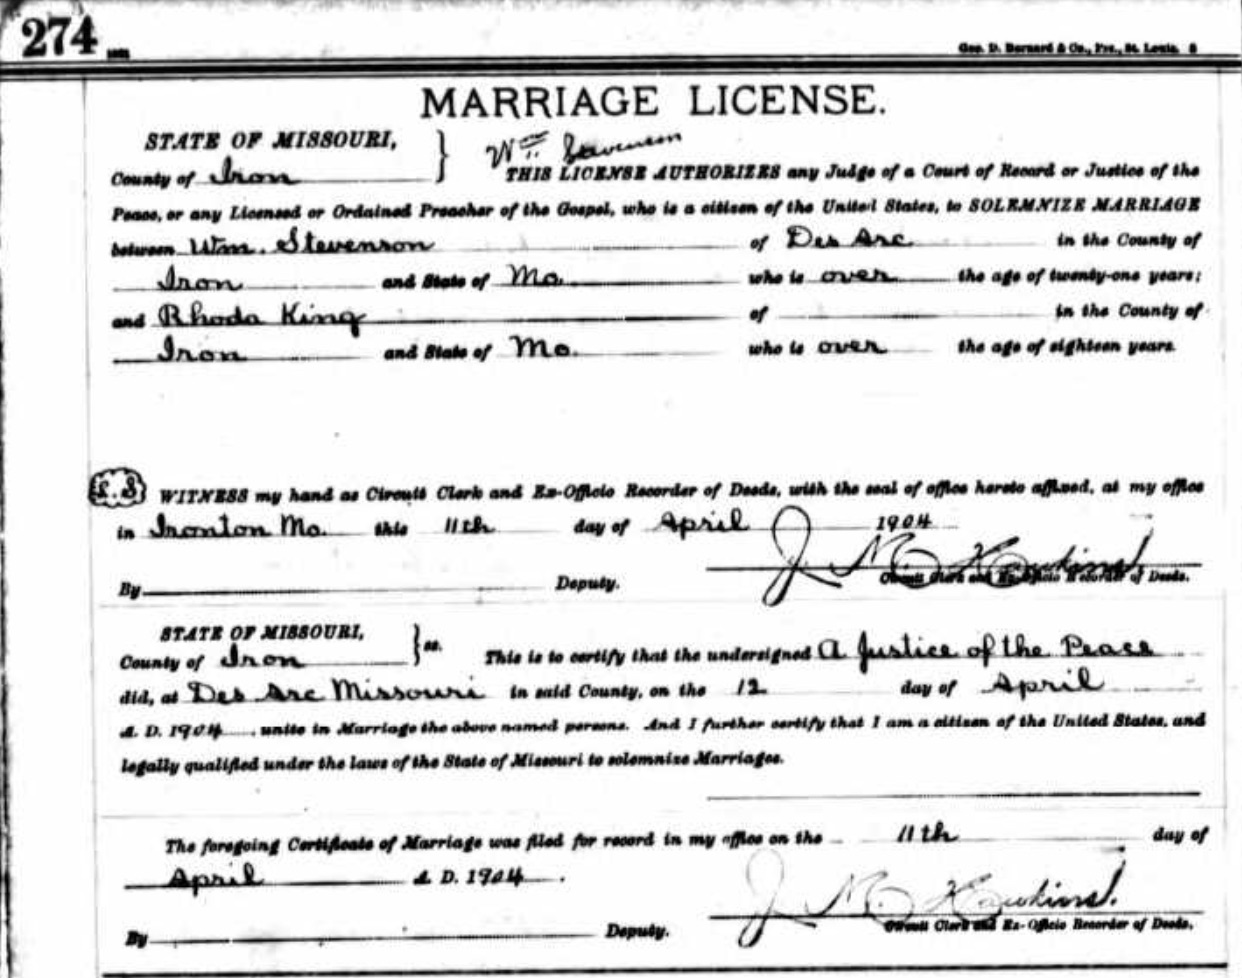 274
Geo. D. Barnard & Co., Prs., St. Louis.
MARRIAGE LICENSE.
STATE OF MISSOURI,
County of Iron
Wm. Stevenson
THIS LICENSE AUTHORIZES any Judge of a Court of Record or Justice of the
Peace, or any Licensed or Ordained Preacher of the Gospel, who is a citizen of the United States, to SOLEMNIZE MARRIAGE
between Wm. Stevenson of Des Arc in the County of
Iron and State of Mo. who is over the age of twenty-one years;
and Rhoda King of in the County of
Iron and State of Mo. who is over the age of eighteen years.
L.S. WITNESS my hand as Circuit Clerk and Ex-Officio Recorder of Deeds, with the seal of office hereto affixed, at my office
in Ironton Mo. this 11th day of April 1904
J. M. Hawkins
Circuit Clerk and Ex-Officio Recorder of Deeds.
By Deputy.
STATE OF MISSOURI,
County of Iron ss. This is to certify that the undersigned A Justice of the Peace
did, at Des Arc Missouri in said County, on the 12 day of April
A. D. 1904, unite in Marriage the above named persons. And I further certify that I am a citizen of the United States, and
legally qualified under the laws of the State of Missouri to solemnize Marriages.
The foregoing Certificate of Marriage was filed for record in my office on the 11th day of
April A. D. 1904.
J. M. Hawkins.
Circuit Clerk and Ex-Officio Recorder of Deeds.
By Deputy.